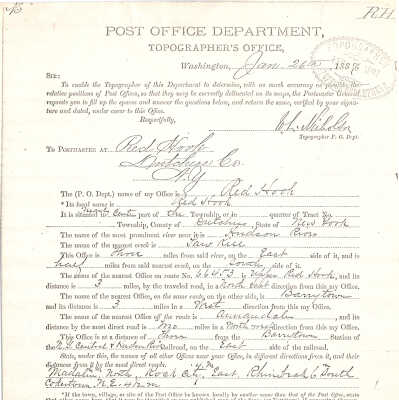 RH
POST OFFICE DEPARTMENT,
TOPOGRAPHER'S OFFICE,
Washington, Jan 26, 1887
SIR:
To enable the Topographer of this Department to determine, with as much accuracy as possible, the
relative positions of Post Offices, so that they may be correctly delineated on its maps, the Postmaster General
requests you to fill up the spaces and answer the questions below, and return the same, verified by your signature
and dated, under cover to this Office.
Respectfully,
W. L. Nicholson
Topographer P. O. Dept.
TO POSTMASTER AT Red Hook
Dutchess Co.
N.Y.
The (P. O. Dept.) name of my Office is Red Hook
*Its local name is Red Hook
It is situated in part of the Township, or quarter of Tract No.
Township, County of Dutchess, State of New York
The name of the most prominent river near it is Hudson River
The name of the nearest creek is Saw Kill
This Office is three miles from said river, on the East side of it, and is
half miles from said nearest creek, on the South side of it.
The name of the nearest Office on route No. 6645 is Upper Red Hook, and its
distance is 3 miles, by the traveled road, in a North East direction from this my Office.
The name of the nearest Office, on the same route, on the other side, is Barrytown
and its distance is 3 miles in a West direction from this my Office.
The name of the nearest Office off the route is Annandale, and its
distance by the most direct road is two miles in a North west direction from this my Office.
This Office is at a distance of three from the Barrytown Station of
the N.Y. Central & Hudson River Railroad, on the East side of the railroad.
State, under this, the names of all other Offices near your Office, in different directions from it, and their
distances from it by the most direct roads.
Madalin North, East, Rhinebeck 6 South
* If the town, village, or site of the Post Office, be known locally by another name than that of the Post Office, state